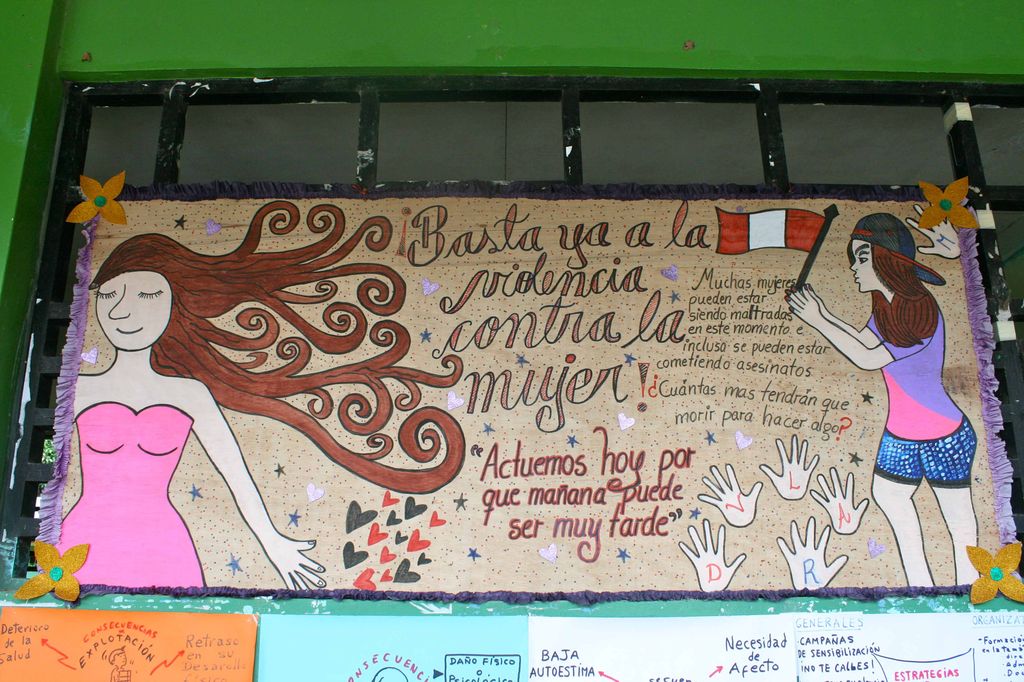 ¡Basta ya a la
violencia
contra la
mujer!
Muchas mujeres
pueden estar
siendo maltradas
en este momento e
inclusa se pueden estar
cometiendo asesinatos
¿Cuántas mas tendrán que
morir para hacer algo?
"Actuemos hoy por
que mañana puede
ser muy tarde"
V L A
D R
Deterioro
de la
Salud
CONSECUENCIAS
EXPLOTACIÓN
Retraso
en su
Desarrollo
físico
CONSECUENCI
DAÑO FÍSICO
o
BAJA
AUTOESTIMA
Necesidad
de
Afecto
GENERALES
CAMPAÑAS
DE SENSIBILIZACIÓN
¡NO TE CALLES!
ESTRATEGIAS
ORGANIZA